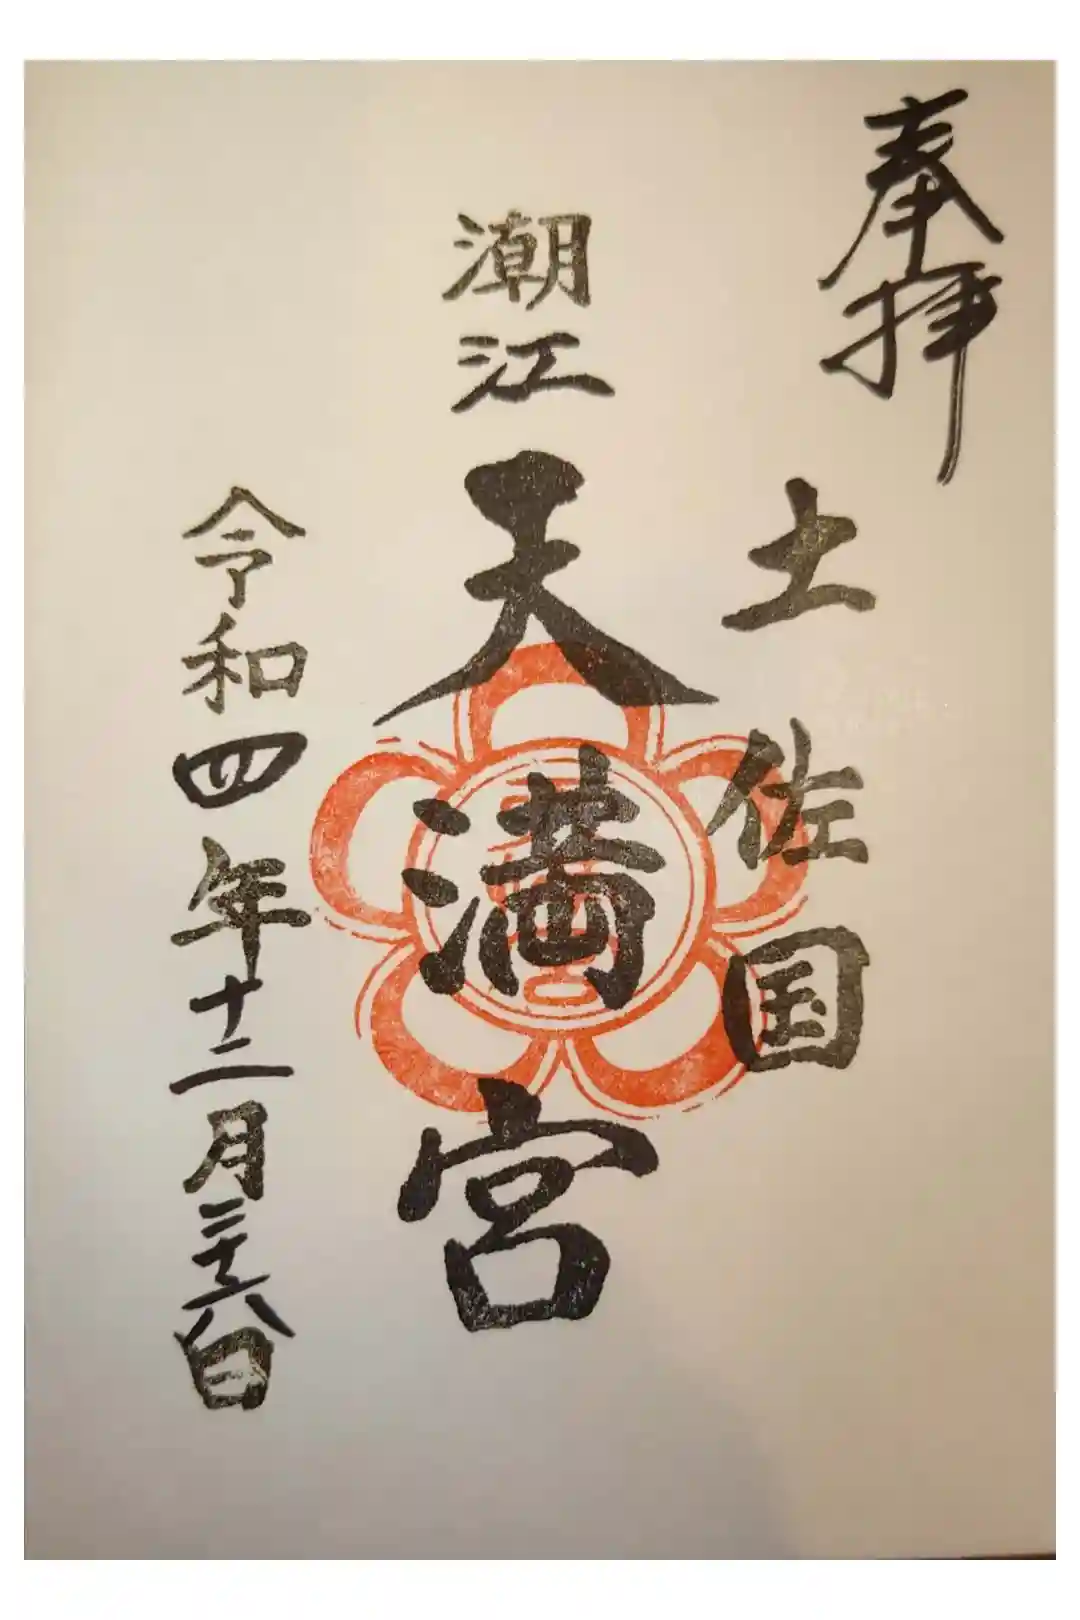 奉拝
土佐国
潮江天満宮
令和四年十二月二十六日